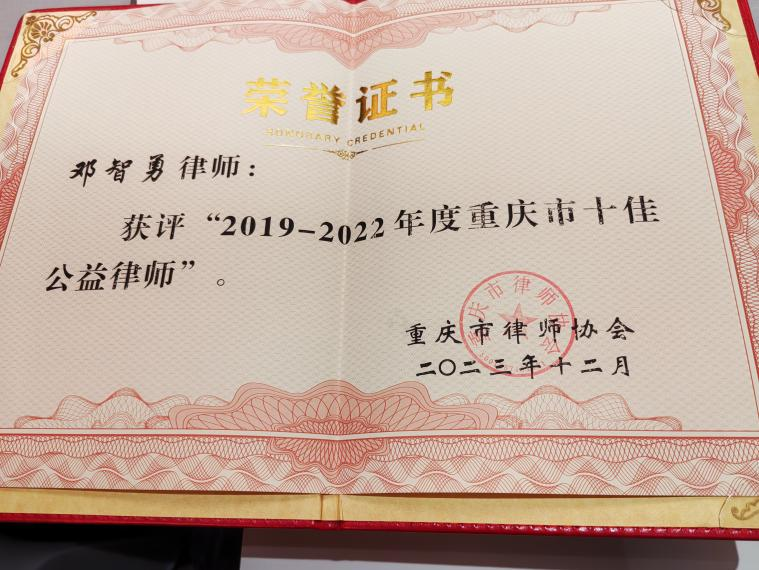 荣誉证书
HONORARY CREDENTIAL
邓智勇律师：
获评“2019-2022年度重庆市十佳
公益律师”。
重庆市律师协会
重庆市律师协会
二〇二三年十二月